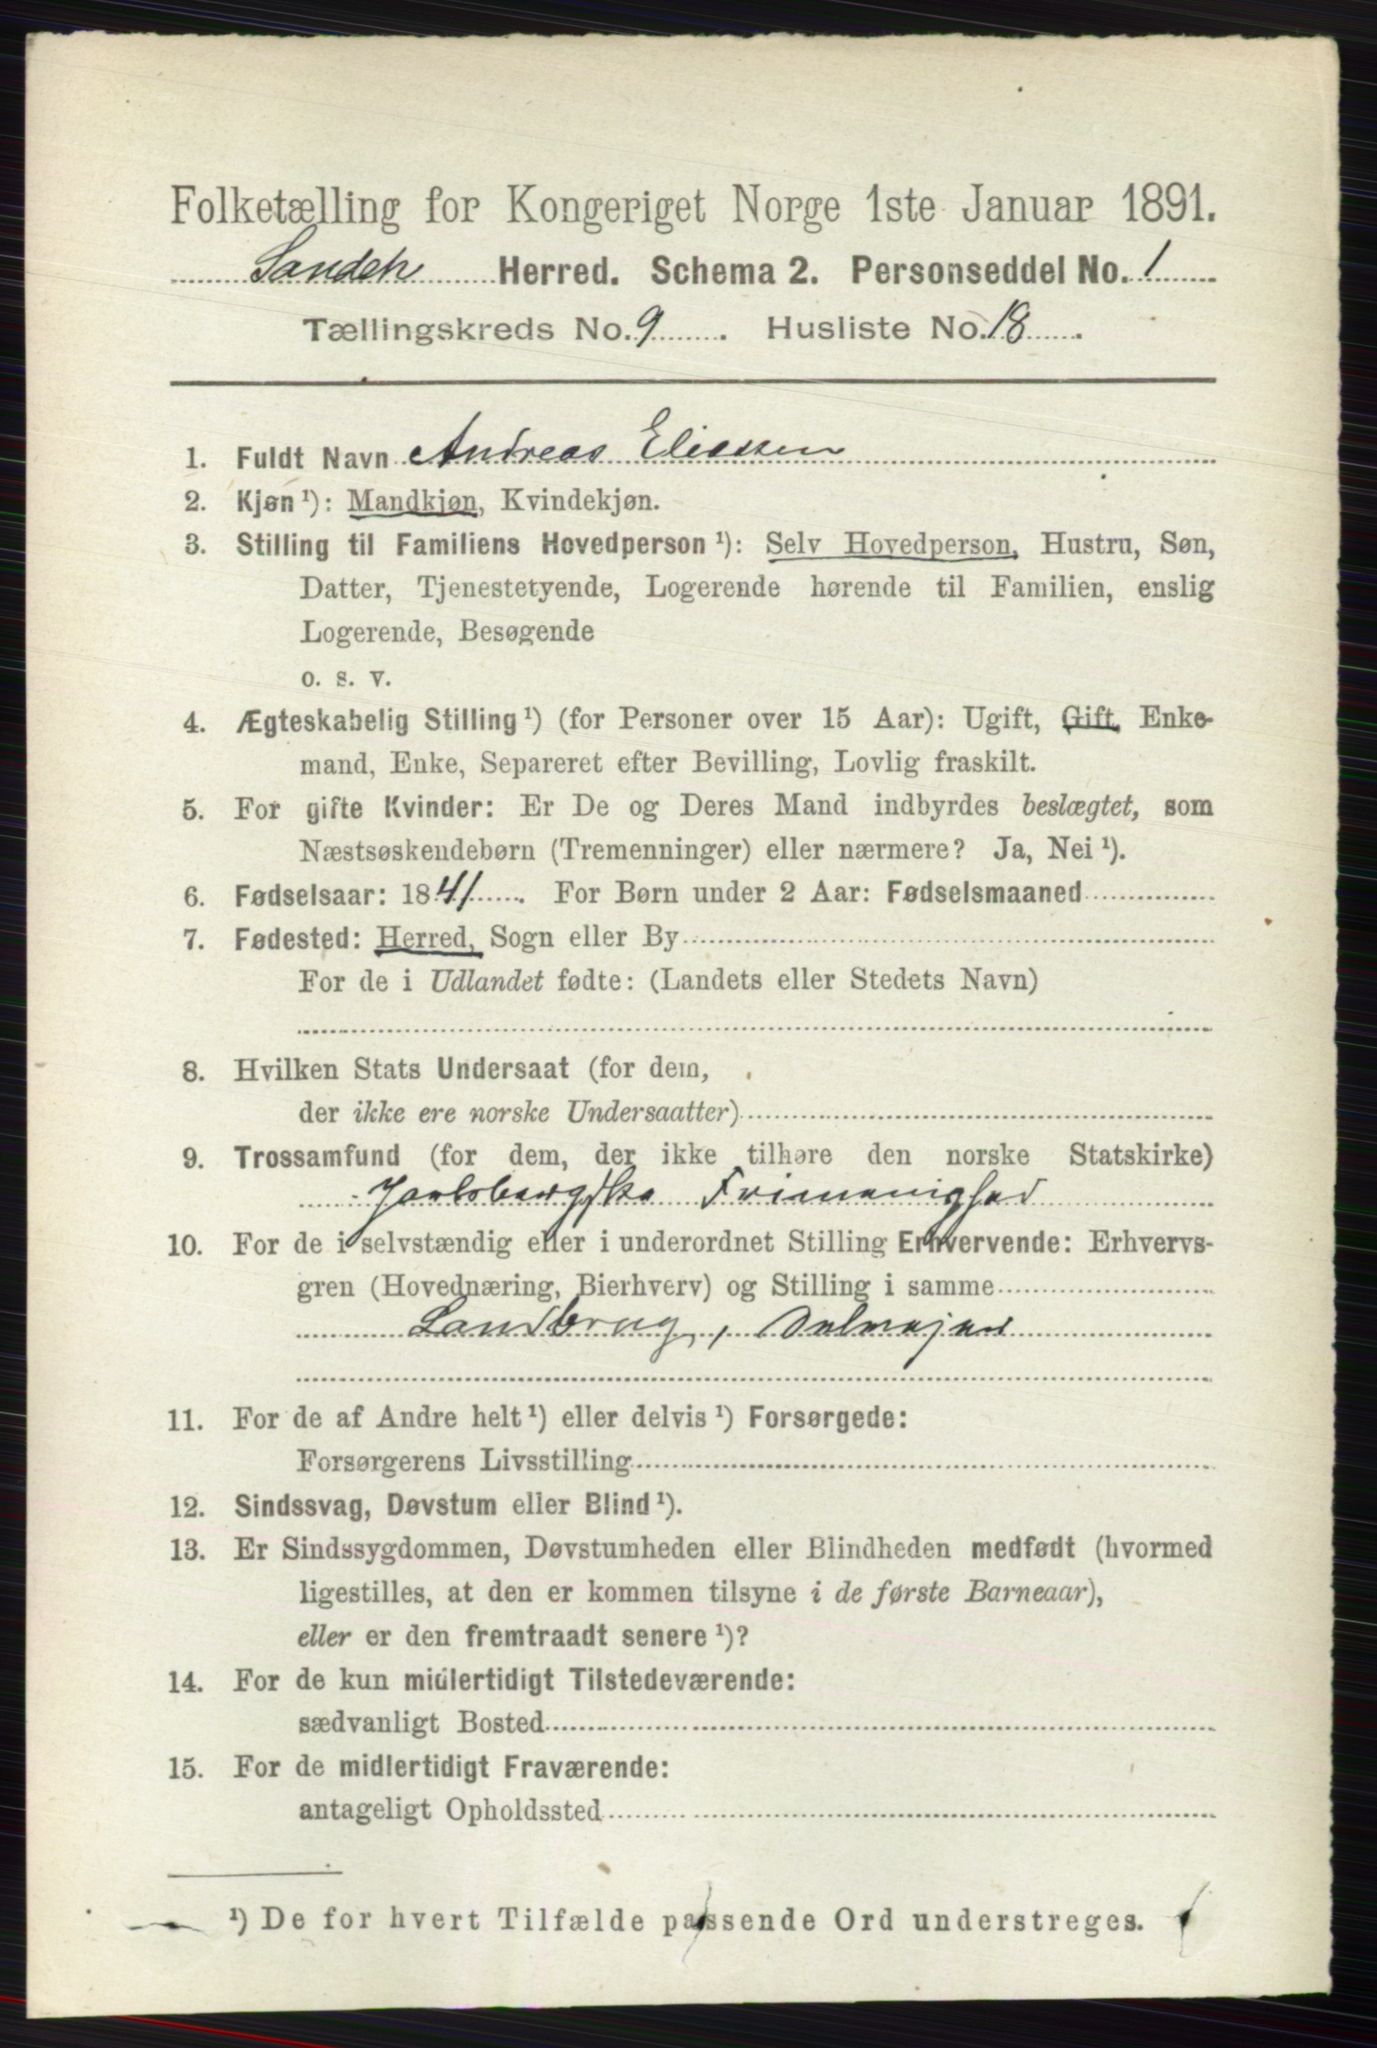 Folketælling for Kongeriget Norge 1ste Januar 1891.
Sandeh Herred. Schema 2. Personseddel No. 1
Tællingskreds No. 9. Husliste No. 18.
1. Fuldt Navn Andreas Eliassen
2. Kjøn ¹): Mandkjøn, Kvindekjøn.
3. Stilling til Familiens Hovedperson ¹): Selv Hovedperson, Hustru, Søn,
Datter, Tjenestetyende, Logerende hørende til Familien, enslig
Logerende, Besøgende
o. s. v.
4. Ægteskabelig Stilling ¹) (for Personer over 15 Aar): Ugift, Gift, Enke-
mand, Enke, Separeret efter Bevilling, Lovlig fraskilt.
5. For gifte Kvinder: Er De og Deres Mand indbyrdes beslægtet, som
Næstsøskendebørn (Tremenninger) eller nærmere? Ja, Nei ¹).
6. Fødselsaar: 1841. For Børn under 2 Aar: Fødselsmaaned
7. Fødested: Herred, Sogn eller By
For de i Udlandet fødte: (Landets eller Stedets Navn)
8. Hvilken Stats Undersaat (for dem,
der ikke ere norske Undersaatter)
9. Trossamfund (for dem, der ikke tilhøre den norske Statskirke)
Jarlsbergske Frimenighed
10. For de i selvstændig eller i underordnet Stilling Erhvervende: Erhvervs-
gren (Hovednæring, Bierhverv) og Stilling i samme
Landbrug, Selvejer
11. For de af Andre helt ¹) eller delvis ¹) Forsørgede:
Forsørgerens Livsstilling
12. Sindssvag, Døvstum eller Blind ¹).
13. Er Sindssygdommen, Døvstumheden eller Blindheden medfødt (hvormed
ligestilles, at den er kommen tilsyne i de første Barneaar),
eller er den fremtraadt senere ¹)?
14. For de kun midlertidigt Tilstedeværende:
sædvanligt Bosted
15. For de midlertidigt Fraværende:
antageligt Opholdssted
¹) De for hvert Tilfælde passende Ord understreges.